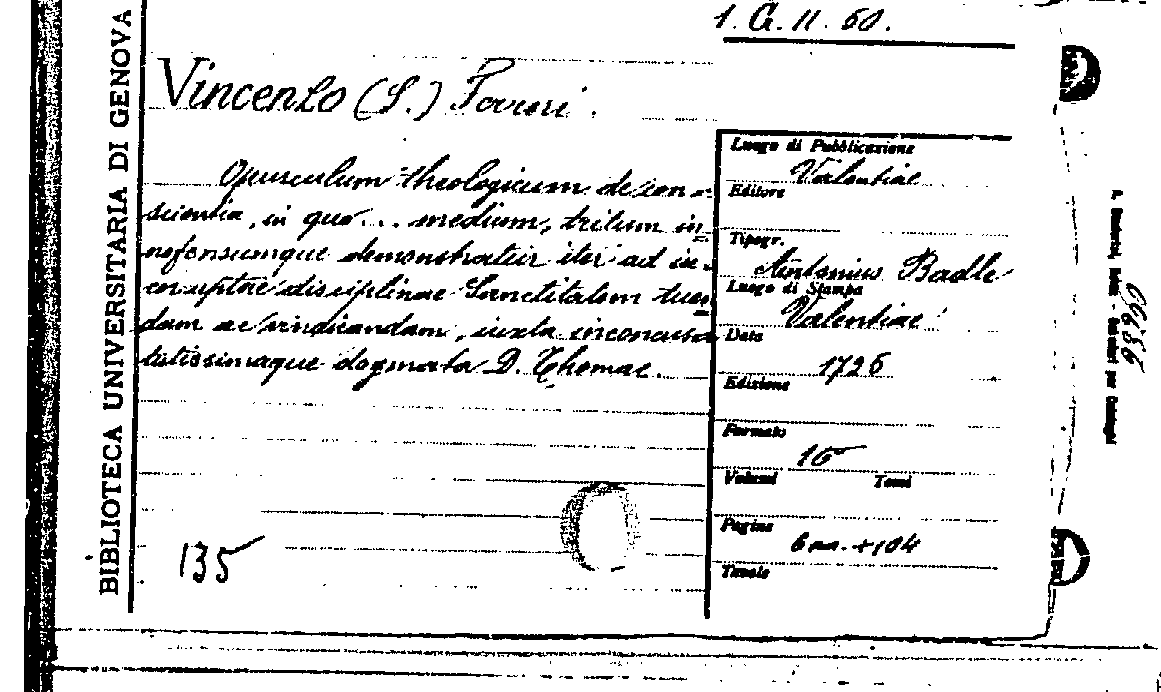 1. G. II. 60.
BIBLIOTECA UNIVERSITARIA DI GENOVA
Vincenzo (S.) Ferreri.
Opusculum theologicum de con=
scientia, in quo... medium, tritum in=
nofensumque demonstratur iter ad in=
corruptae disciplinae Sanctitatem tuen=
dam ac vindicandam, iuxta inconcussa
tutissimaque dogmata D. Thomae.
135
Luogo di Pubblicazione
Valentiae
Editore
Tipogr.
Antonius Badle
Luogo di Stampa
Valentiae
Data
1725
Edizione
Formato
16
Volumi Tomi
Pagine
6 nn. + 104
Tavole